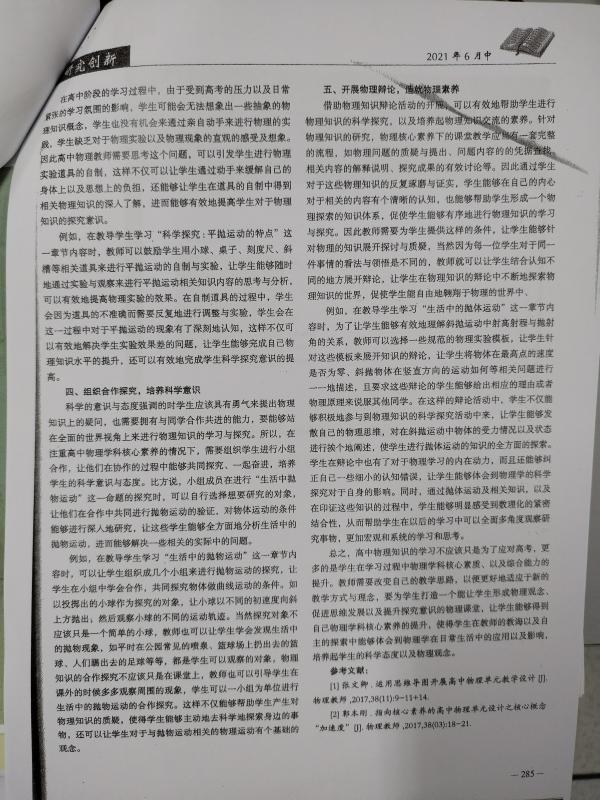 研究创新
2021 年 6 月中
在高中阶段的学习过程中，由于受到高考的压力以及日常
紧张的学习氛围的影响，学生可能会无法想象出一些抽象的物
理知识概念，学生也没有机会来通过亲自动手来进行物理的实
践，学生缺乏对于物理实验以及物理现象的直观的感受及想象。
因此高中物理教师需要思考这个问题，可以引发学生进行物理
实验道具的自制，这样不仅可以让学生通过动手来缓解自己的
身体上以及思想上的负担，还能够让学生在道具的自制中得到
相关物理知识的深入了解，进而能够有效地提高学生对于物理
知识的探究意识。
例如，在教导学生学习“科学探究：平抛运动的特点”这
一章节内容时，教师可以鼓励学生用小球、桌子、刻度尺、斜
槽等相关道具来进行平抛运动的自制与实验，让学生能够随时
地通过实验与观察来进行平抛运动相关知识内容的思考与分析，
可以有效地提高物理实验的效果。在自制道具的过程中，学生
会因为道具的不准确而需要反复地进行调整与实验，学生会在
这一过程中对于平抛运动的现象有了深刻地认知，这样不仅可
以有效地解决学生实验效果差的问题，让学生能够完成自己物
理知识水平的提升，还可以有效地完成学生科学探究意识的提
高。
四、组织合作探究，培养科学意识
科学的意识与态度强调的时学生应该具有勇气来提出物理
知识上的疑问，也需要拥有与同学合作共进的能力，要能够站
在全面的世界视角上来进行物理知识的学习与探究。所以，在
注重高中物理学科核心素养的情况下，需要组织学生进行小组
合作，让他们在协作的过程中能够共同探究、一起奋进，培养
学生的科学意识与态度。比方说，小组成员在进行“生活中的
抛物运动”这一命题的探究时，可以自行选择想要研究的对象，
让他们在合作中共同进行抛物运动的验证，对物体运动的条件
能够进行深入地研究，让这些学生能够全方面地分析生活中的
抛物运动，进而能够解决一些相关的实际中的问题。
例如，在教导学生学习“生活中的抛物运动”这一章节内
容时，可以让学生组织成几个小组来进行抛物运动的探究，让
学生在小组中学会合作，共同探究物体做曲线运动的条件。如
以投掷出的小球作为探究的对象，让小球以不同的初速度向斜
上方抛出；然后观察小球的不同的运动轨迹。当然探究对象不
应该只是一个简单的小球，教师也可以让学生学会发现生活中
的抛物现象，如平时在公园常见的喷泉、篮球场上扔出去的篮
球、人们踢出去的足球等等，都是学生可以观察的对象，物理
知识的合作探究不应该只是在课堂上，教师也可以引导学生在
课外的时候多多观察周围的现象，学生可以一小组为单位进行
生活中的抛物运动的合作探究。这样不仅能够帮助学生产生对
物理知识的质疑，使得学生能够主动地去科学地探索身边的事
物，还可以让学生对于与抛物运动相关的物理运动有个基础的
观念。
五、开展物理辩论，借就物理素养
借助物理知识辩论活动的开展，可以有效地帮助学生进行
物理知识的科学探究，以及培养起物理知识交流的素养。针对
物理知识的研究，物理核心素养下的课堂教学应该有一套完整
的流程，如物理问题的质疑与提出、问题内容的的凭据查找、
相关内容的解释说明、探究成果的有效讨论等。因此通过学生
对于这些物理知识的反复琢磨与证实，学生能够在自己的内心
对于相关的内容有个清晰的认知，也能够帮助学生形成一个物
理探索的知识体系，促使学生能够有序地进行物理知识的学习
与探究。因此教师需要为学生提供这样的条件，让学生能够针
对物理的知识展开探讨与质疑，当然因为每一位学生对于同一
件事情的看法与领悟是不同的，教师就可以让学生结合认知不
同的地方展开辩论，让学生在物理知识的辩论中不断地探索物
理知识的世界，促使学生能自由地翱翔于物理的世界中、
例如，在教导学生学习“生活中的抛体运动”这一章节内
容时，为了让学生能够有效地理解斜抛运动中射高射程与抛射
角的关系，教师可以选择一些规范的物理实验模板，让学生针
对这些模板来展开知识的辩论，让学生将物体在最高点的速度
是否为零、斜抛物体在竖直方向的运动如何等相关问题进行
一一地描述，且要求这些辩论的学生能够给出相应的理由或者
物理原理来说服其他同学。在这样的辩论活动中，学生不仅能
够积极地参与到物理知识的科学探究活动中来，让学生能够发
散自己的物理思维，对在斜抛运动中物体的受力情况以及状态
进行挨个地阐述，使学生进行抛体运动的知识的全方面的探索。
学生在辩论中也有了对于物理学习的内在动力，而且还能够纠
正自己一些细小的认知错误，让学生能够体会到物理学的科学
探究对于自身的影响。同时，通过抛体运动及相关知识，以及
在印证这些知识的过程中，学生能够明显感受到数理化的紧密
结合性，从而帮助学生在以后的学习中可以全面多角度观察研
究事物，更加宏观和系统的学习和思考。
总之，高中物理知识的学习不应该只是为了应对高考，更
多的是学生在学习过程中物理学科核心素质、以及综合能力的
提升。教师需要改变自己的教学思路，以便更好地适应于新的
教学方式与理念，要为学生打造一个能让学生形成物理观念、
促进思维发展以及提升探究意识的物理课堂，让学生能够得到
自己物理学科核心素养的提升，使得学生在教师的教诲以及自
主的探索中能够体会到物理学在日常生活中的应用以及影响，
培养起学生的科学态度以及物理观念。
参考文献：
[1] 张文卿．运用思维导图开展高中物理单元教学设计 [J].
物理教师 ,2017,38(11):9-11+14.
[2] 郭本刚．指向核心素养的高中物理单元设计之核心概念
“加速度” [J]. 物理教师 ,2017,38(03):18-21.
— 285 —